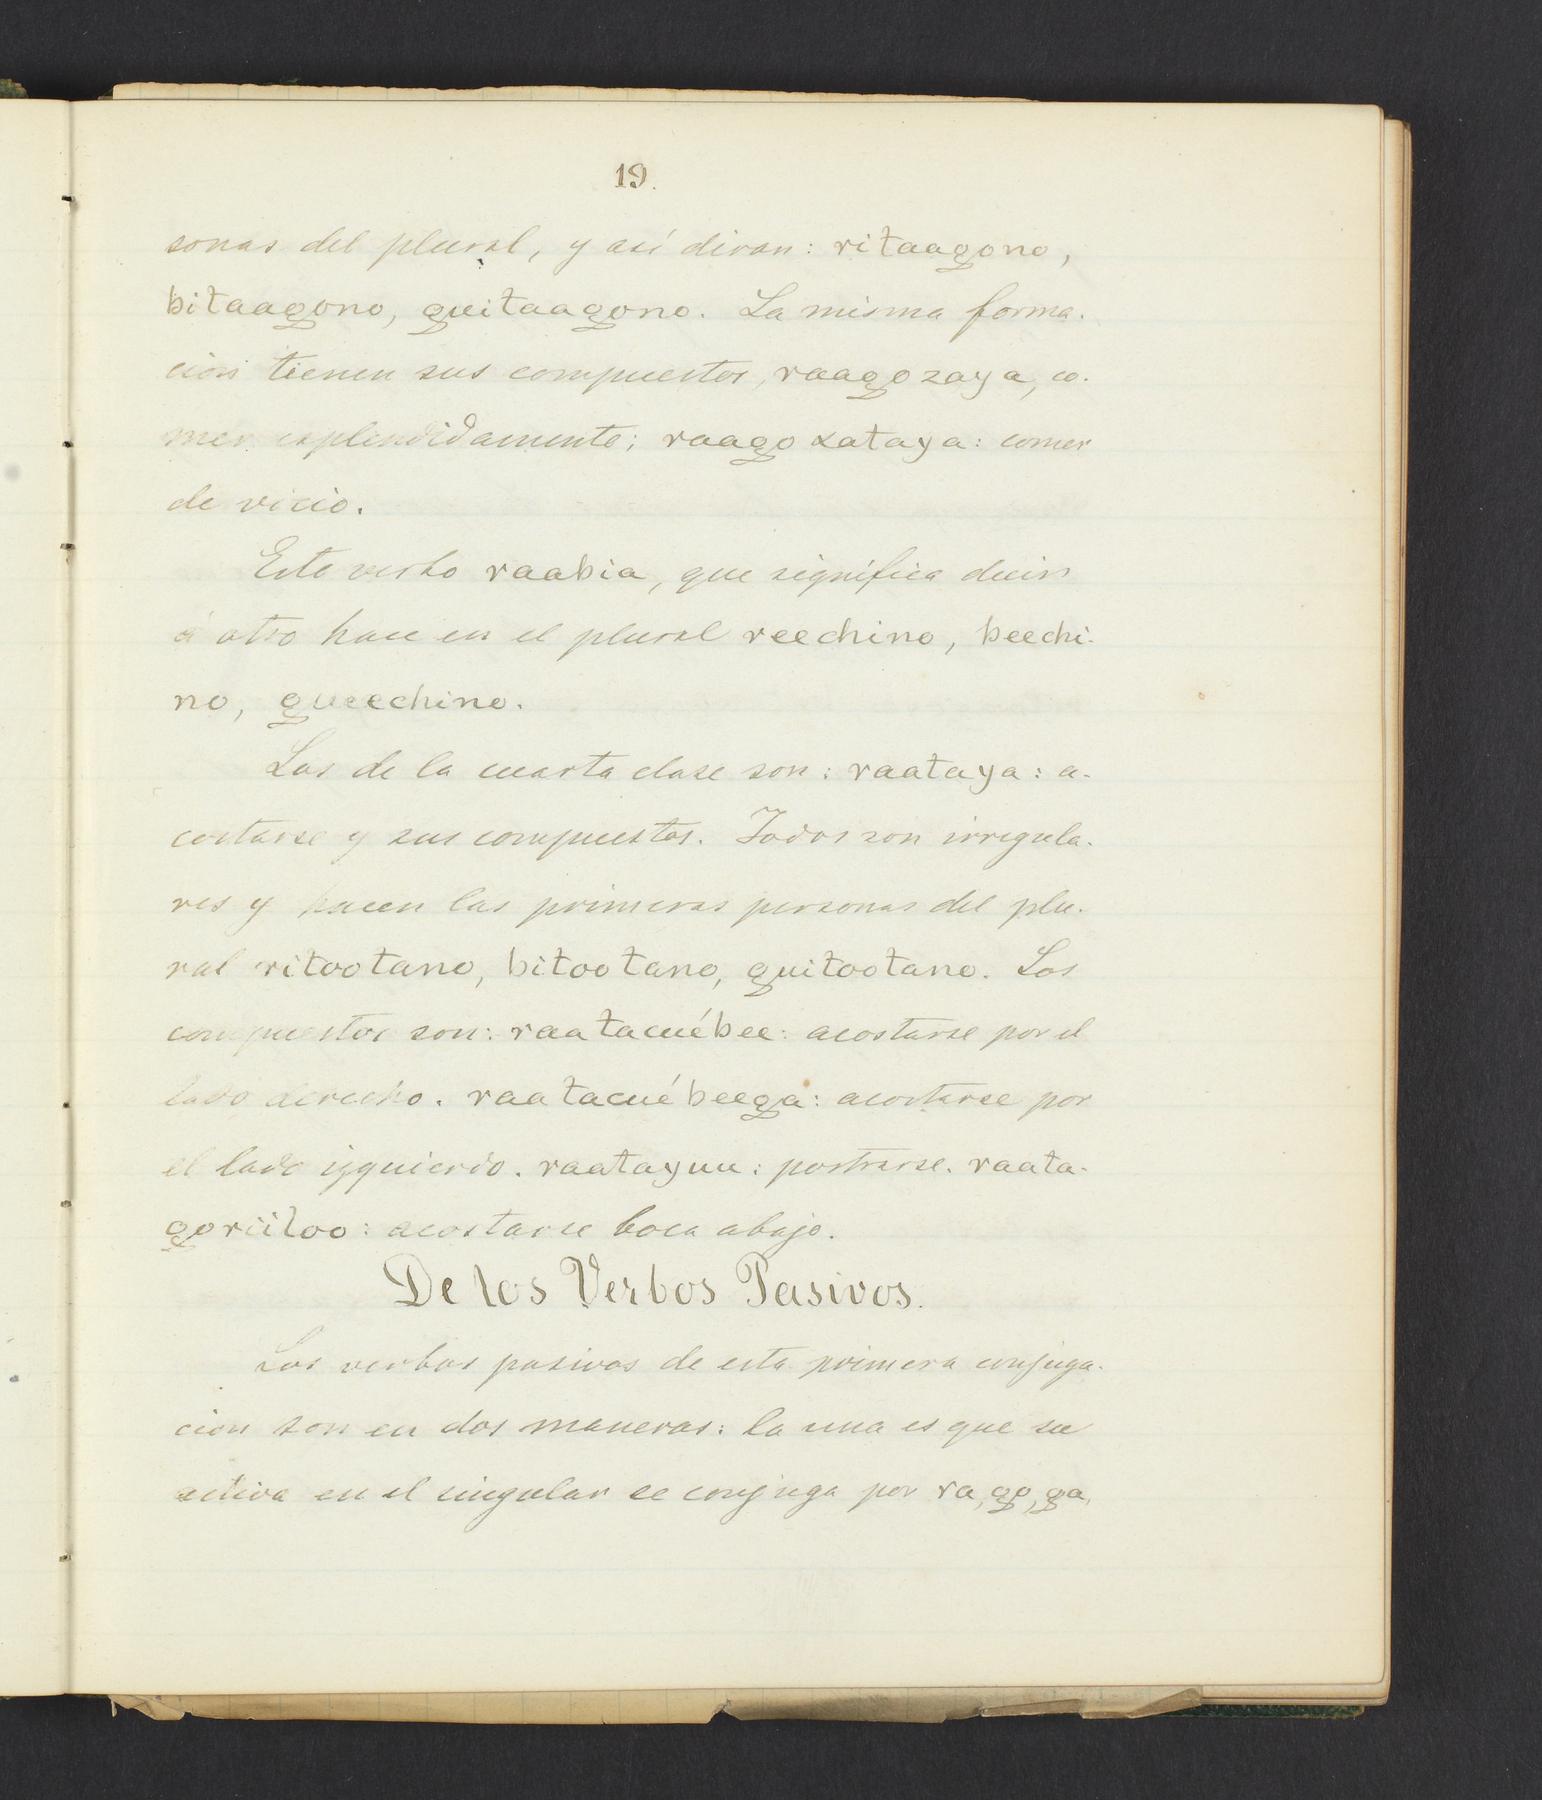 19.
sonas del plural, y asi diran: ritaagono,
bitaagono, guitaagono. La misma forma-
cion tienen sus compuestos, raagozaya, co-
mer esplendidamente; raagoxataya: comer
de vicio.
Este verbo raabia, que significa decir
á otro hace en el plural reechino, beechi-
no, gueechino.
Los de la cuarta clase son: raataya: a-
costarse y sus compuestos. Todos son irregula-
res y hacen las primeras personas del plu-
ral ritootano, bitootano, guitootano. Los
compuestos son: raatacuébee: acostarse por el
lado derecho. raatacuébeega: acostarse por
el lado izquierdo. raatayuu: postrarse. raata-
goriiloo: acostarse boca abajo.
De los Verbos Pasivos.
Los verbos pasivos de esta primera conjuga-
cion son en dos maneras: la una es que su
activa en el singular se conjuga por ra, go, ga,